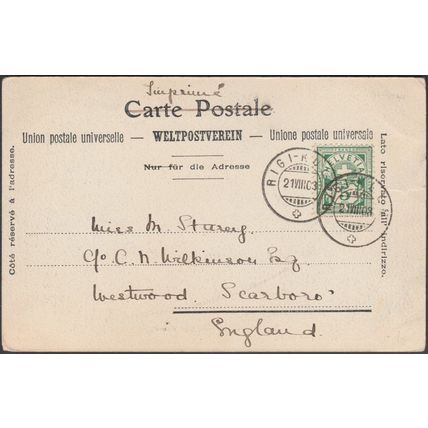 Imprimé
Carte Postale
Union postale universelle — WELTPOSTVEREIN — Unione postale universale
Nur für die Adresse
Côté réservé à l'adresse.
Lato riservato all' indirizzo.
RIGI-K
21VIII03
HELVETIA
5
RIGI
21VIII03
Miss M.
c/o C. N. Wilkinson Esq
Westwood Scarboro'
England